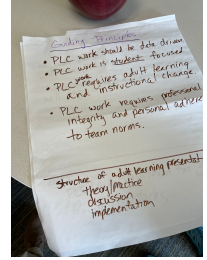 Guiding Principles
• PLC work should be data driven
• PLC work is student focused
• PLC work requires adult learning
and instructional change.
• PLC work requires professional
integrity and personal adhere
to team norms.
structure of adult learning presentat
theory/practice
discussion
implementation